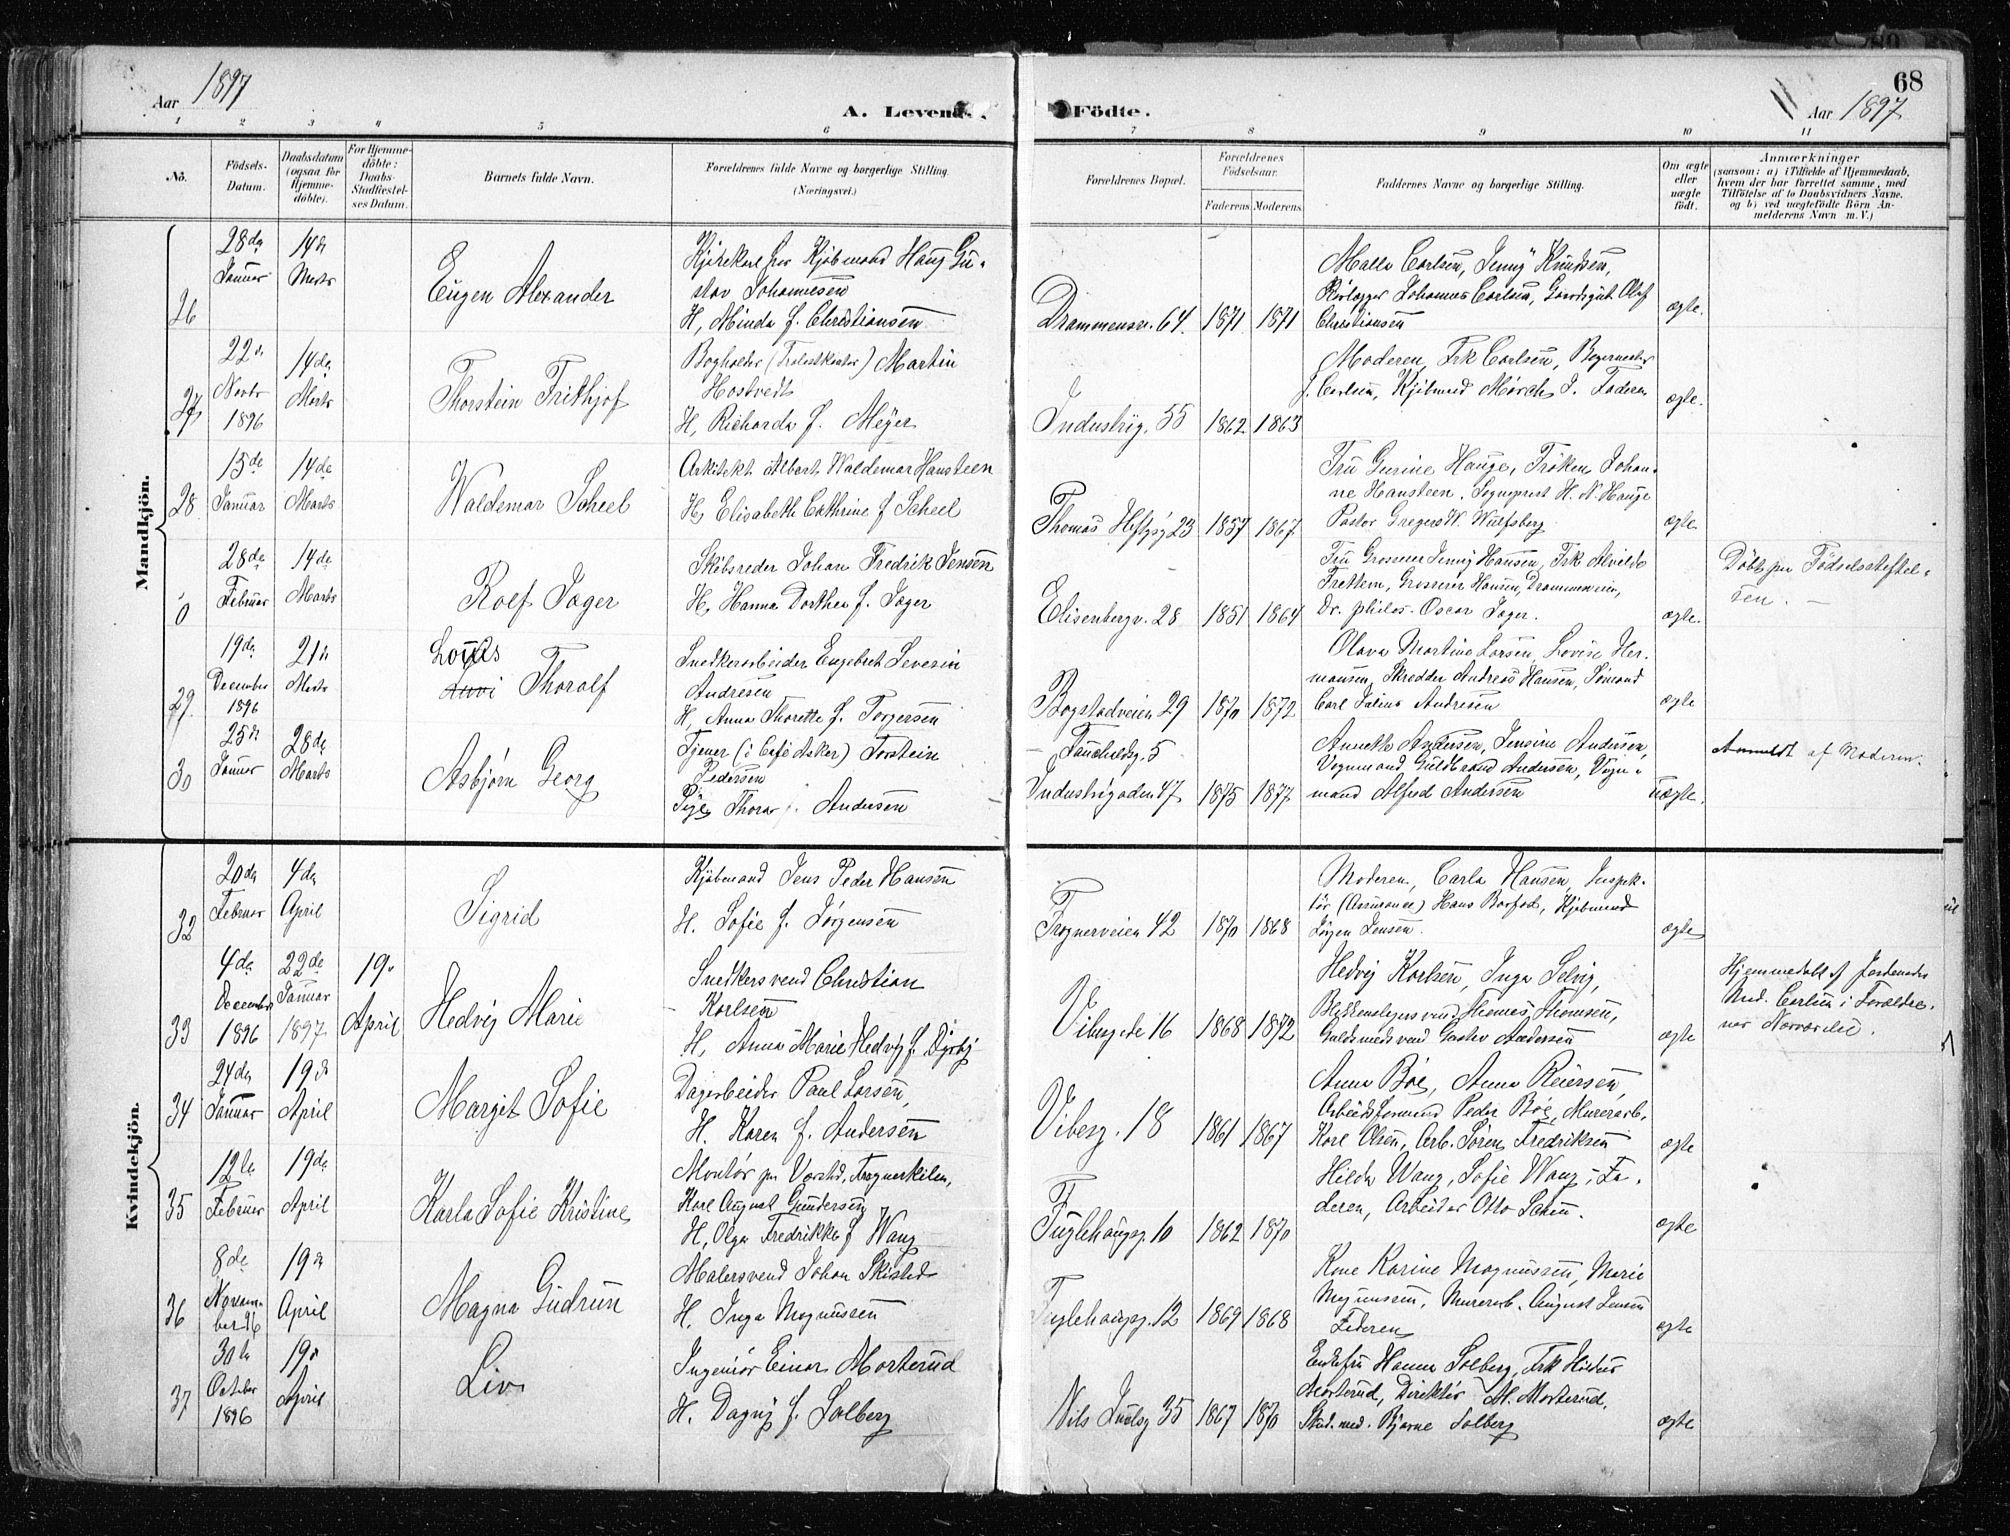 Aar 1897
A. Levende
Födte.
68
Aar 1897
1 2 3 4 5 6 7 8 9 10 11
No.
Födsels-Datum.
Daabsdatum (ogsaa for Hjemme-döbte).
For Hjemme-döbte: Daabs-Stadfæstel-ses Datum.
Barnets fulde Navn.
Forældrenes fulde Navne og borgerlige Stilling.
(Næringsvei.)
Forældrenes Bopæl.
Forældrenes Födselsaar.
Faderens. Moderens.
Faddernes Navne og borgerlige Stilling.
Om ægte eller uægte födt.
Anmærkninger
(saasom: a) i Tilfælde af Hjemmedaab,
hvem der har forrettet samme, med
Tilföielse af to Daabsvidners Navne.
og b) ved uægtefödte Börn An-
melderens Navn m. V.)
Mandkjön.
26
28da Januar
14de Marts
Eugen Alexander
Kjørekarl hos Kjøbmand Haug Gu-
stav Johannesen
H, Minda f. Christiansen
Drammensv. 64.
1871
1871
Malla Carlsen, Jenny Knudsen,
Johannes Carlsen, Gaardsgut Olaf
Christiansen
ægte.
27
22de Novbr 1896
14da Marts
Thorstein Frithjof
Bogholder Martin
Hostvedt
H, Richarda f. Meyer
Industrig. 55
1862
1863
Moderen, Frk Carlsen, Bagermester
J. Carlsen, Kjøbmand Mørch, J. Faderen
ægte.
28
15de Januar
14de Marts
Waldemar Scheel
Arkitekt Albert Waldemar Hansteen
H, Elisabeth Cathrine f Scheel
Thomas Heftyesg 23
1857
1867
Fru Gurine Hauge, Frøken Johan-
ne Hansteen, Sogneprest H. N. Hauge
Pastor Gregers W. Wulfsberg
ægte
0
28da Februar
14da Marts
Rolf Jæger
Skibsreder Johan Fredrik Jensen
H, Hanna Dorthea f. Jæger
Elisenbergv. 28
1851
1864
Fru Grosserer Jenny Hansen, Frk Alvilde
Frettem, Grosserer Hansen, Drammensveien,
Dr. philos. Oscar Jæger.
ægte.
Döbt paa Födselsstiftel-
sen. —
29.
19da December 1896
21de Marts
Louis
Thoralf
Snedkerarbeider Engebret Severin
Andresen
H, Anna Thorette f. Torgersen
Bogstadveien 29
1870
1872
Olava Martine Larsen, Lovise Her-
mansen, Skredder Andreas Hansen, Sømand
Carl Julius Andresen
ægte
30
25de Januar
28da Marts
Asbjørn Georg
Tjener (i Café Asker) Torstein
Pedersen
Pige Thora Andersen
— Fauchaldsg. 5
Industrigaden 47
1875
1877
Anneth Andersen, Jensine Andersen,
Vognmand Guldbrand Andersen, Vogn-
mand Alfred Andersen
uægte.
Anmeldt af Moderen.
Kvindekjön.
32
20da Februar
4da April
Sigrid
Kjøbmand Jens Peder Hansen
H. Sofie f. Jørgensen
Frognerveien 42
1870
1868
Moderen, Carla Hansen, Inspek-
tør (Assurance) Hans Barfod, Kjøbmand
Jørgen Jensen.
ægte
33
4da December 1896
22de Januar 1897
19. April
Hedvig Marie
Snedkersvend Christian
Karlsen
H, Anna Marie Hedvig f. Dyrby
Vibesgade 16
1868
1872
Hedvig Karlsen, Inga Selvig,
Blikkenslagersvend Thomas Thomsen,
Guldsmedsvend Gustav Andersen
ægte
Hjemmedøbt af Jordemoder
Mad. Carlsen i Forældre-
nes Nærværelse.
34
24da Januar
19de April
Margit Sofie
Dagarbeider Paul Larsen,
H. Karen f. Andersen
Vibesg. 18
1861
1867
Anna Bøe, Anna Reiersen,
Arbeidsformand Peder Bøe, Murerarb.
Karl Olsen, Arb. Søren Fredriksen
ægte
35
12te Februar
19da April
Karla Sofie Kristine
Montør paa Værksted, Frognerkilen,
Karl August Gundersen
H, Olga Fredrikke f Wang
Fuglehaugg. 10
1862
1870
Hilda Wang, Sofie Wang, Fa-
deren, Arbeider Otto Larsen.
ægte
36
8de November 96
19de April
Magna Gudrun
Malersvend Johan Skistad
H. Inga Magnussen
Fuglehaugg. 12
1869
1868
Kone Karine Magnussen, Marie
Magnussen, Murerarb. August Jensen
Faderen
ægte
37
30te October 1896
19de April
Liv
Ingeniør Einar Morterud
H. Dagny f. Solberg
Nils Juelsg 35
1867
1870
Enkefru Hanna Solberg, Frk Hildur
Morterud, Direktør A. Morterud,
Stud. med. Bjarne Solberg
ægte